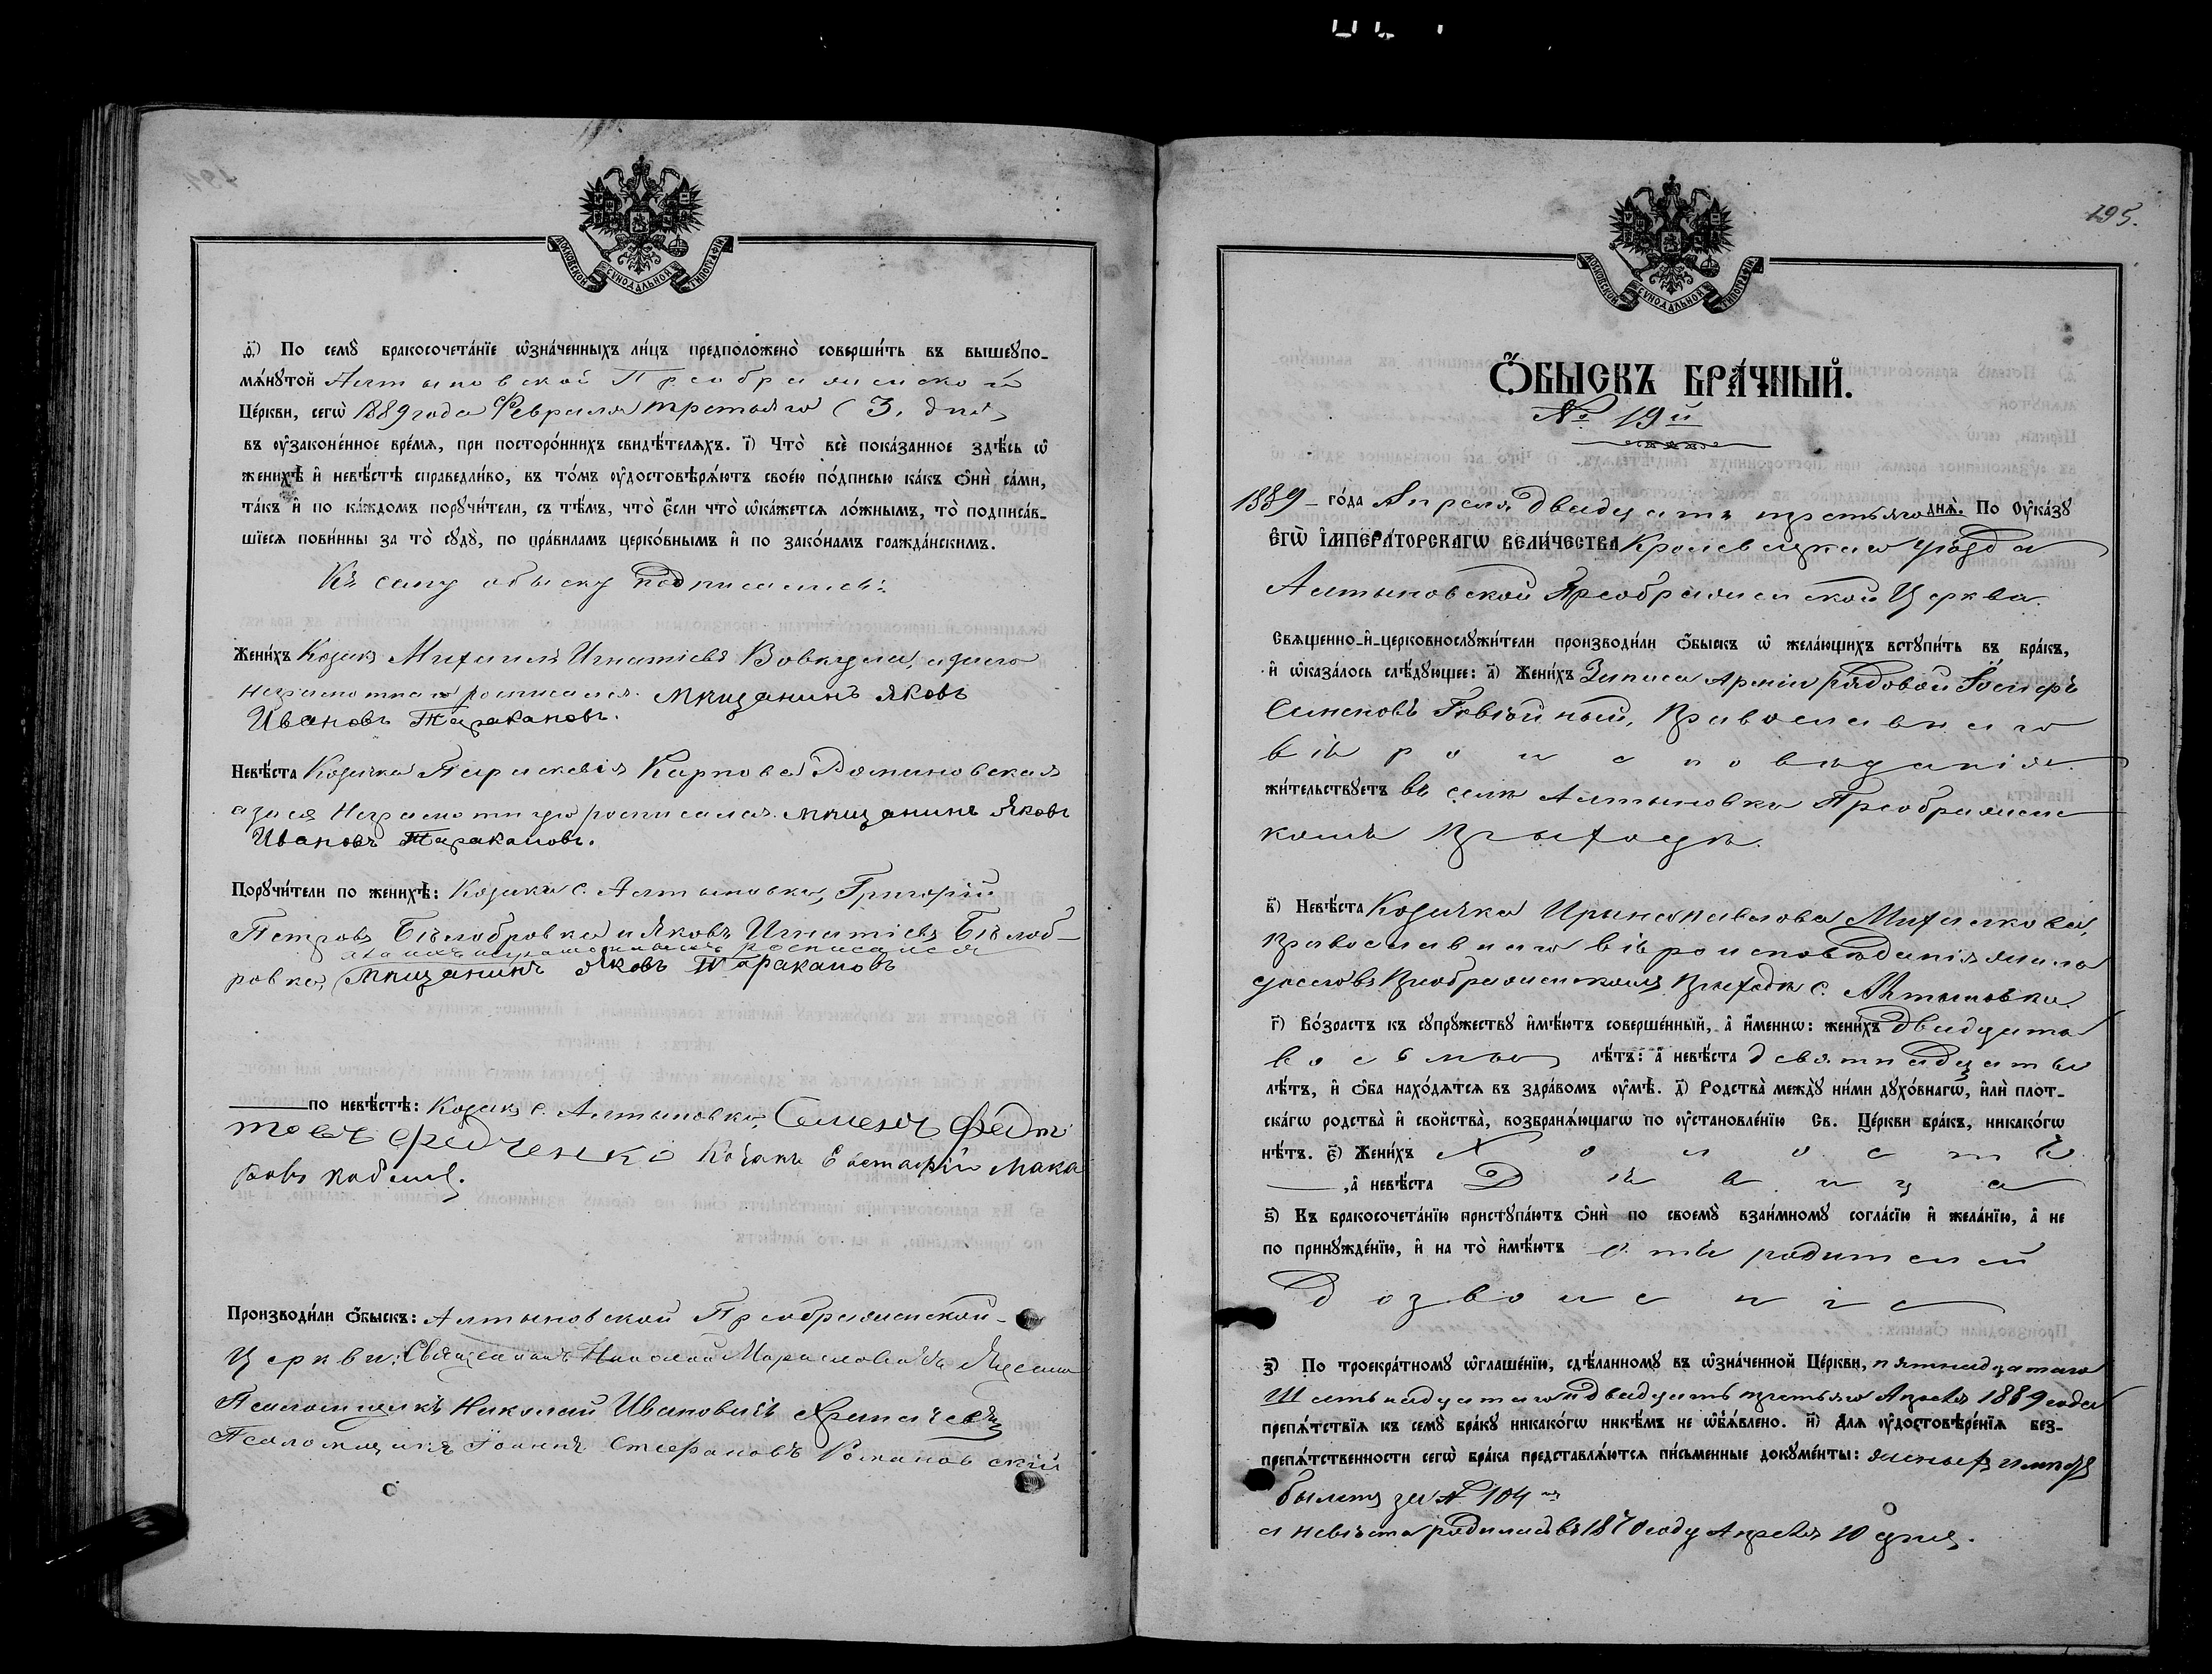 МОСКОВСКОЙ СУНОДАЛЬНОЙ ТИПОГРАФІИ
ѳ҃) По семꙋ̀ бракосочета́нїе ѡ҆зна́ченныхъ ли́цъ предположено̀ соверши́ть въ вышеꙋпо-
мѧ́нꙋтой Алтыновской Преображенской
Це́ркви, сегѡ̀ 1889 года Февраля третьяго (3. дня)
въ ᲂу҆зако́нное вре́мѧ, при посторо́ннихъ свидѣ́телѧхъ. і҃) Что̀ всѐ пока́занное здѣ́сь ѡ҆
женихѣ̀ и҆ невѣ́стѣ справедли́во, въ то́мъ ᲂу҆достовѣрѧ́ютъ свое́ю по́дписью ка́къ ѻ҆нѝ са́ми,
та́къ и҆ по ка́ждомъ порꙋчи́тели, съ тѣ́мъ, что̀ є҆́сли что̀ ѡ҆ка́жетсѧ ло́жнымъ, то̀ подписа́в-
шїесѧ пови́нны за то̀ сꙋдꙋ̀, по пра́виламъ церко́внымъ и҆ по зако́намъ гражда́нскимъ.
Къ сему обыску подписались:
Жени́хъ Козакъ Михаилъ Игнатіевъ Вовкула, а за него
неграмотнаго росписался. мѣщанинъ Яковъ
Ивановъ Таракановъ.
Невѣ́ста Козачка Параскевія Карпова Романовская
а за ея неграмотную росписался. мѣщанинъ Яковъ
Ивановъ Таракановъ.
Порꙋчи́тели по женихѣ̀: Козаки с. Алтыновки, Григорій
Петровъ Бѣлобровка и Яковъ Игнатіевъ Бѣлоб-
а за ихъ неграмотныхъ росписался
ровка, мѣщанинъ Яковъ Таракановъ
по невѣ́стѣ: Козакъ с. Алтыновки, Семенъ
Федченко Козакъ Евстафій Мака
ровъ
Производи́ли ѻ҆́быскъ: Алтыновской Преображенской
Церкви: Священникъ Николай
Псаломщикъ Николай Ивановичъ
Псаломщикъ Іоаннъ Стефановъ Романовскій
195.
МОСКОВСКОЙ СУНОДАЛЬНОЙ ТИПОГРАФІИ
Ѻ҆́БЫСКЪ БРА́ЧНЫЙ.
№ 19й
1889 – го́да Апреля двадцать третьяго днѧ̀. По ᲂу҆ка́зꙋ
Є҆гѡ̀ І҆мпера́торскагѡ Вели́чества Кролевецкаго уѣзда
Алтыновской Преображенской Церкви.
Свѧщенно-и҆-церковнослꙋжи́тели производи́ли ѻ҆́быскъ ѡ҆ жела́ющихъ встꙋпи́ть въ бра́къ,
и҆ ѡ҆каза́лось слѣ́дꙋющее: а҃) Жени́хъ Запаса Арміи рядовой Іосифъ
Семеновъ православнаго
вѣроисповѣданія
жи́тельствꙋетъ въ селѣ Алтыновкѣ Преображенс
комъ приходѣ.
в҃) Невѣ́ста Козачка Ирина Павлова Михалкова,
православнаго вѣроисповѣданія жила
досего въ Преображенскомъ приходѣ с. Алтыновки.
г҃) Во́зрастъ къ сꙋпрꙋ́жествꙋ и҆мѣ́ютъ соверше́нный, а҆ и҆́менно: жени́хъ двадцати
восьмы лѣ́тъ: а҆ невѣ́ста девятнадцаты
лѣ́тъ, и҆ ѻ҆́ба нахо́дѧтсѧ въ здра́вомъ ᲂу҆мѣ̀. д҃) Родства̀ междꙋ̀ ни́ми дꙋхо́внагѡ, и҆лѝ плот-
ска́гѡ родства̀ и҆ свойства̀, возбранѧ́ющагѡ по ᲂу҆становле́нїю Св. Це́ркви бра́къ, никако́гѡ
нѣ́тъ. є҃) Жени́хъ Холостъ
, а҆ невѣ́ста Дѣвица
ѕ҃) Къ бракосочета́нїю пристꙋпа́ютъ ѻ҆нѝ по своемꙋ̀ взаи́мномꙋ согла́сїю и҆ жела́нїю, а҆ не
по принꙋжде́нїю, и҆ на то̀ и҆мѣ́ютъ отъ родителей
Дозволеніе
з҃) По троекра́тномꙋ ѡ҆глаше́нїю, сдѣ́ланномꙋ въ ѡ҆зна́ченной Це́ркви, пятнадцатаго
Шестьнадцатаго и двадцать третьяго Апреля 1889 года
препѧ́тствїѧ къ семꙋ̀ бра́кꙋ никако́гѡ никѣ́мъ не ѡ҆б̾ѧ́влено. и҃) Длѧ ᲂу҆достовѣре́нїѧ без-
препѧ́тственности сегѡ̀ бра́ка представлѧ́ютсѧ пи́сьменные докꙋме́нты: жених имѣя
былетъ за № 104
а невѣста родилась въ 1870 году Апреля 10 дня.